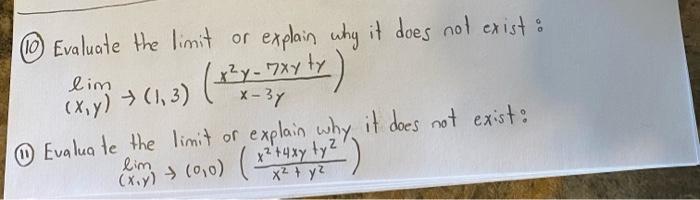 ⑩ Evaluate the limit or explain why it does not exist:
lim (x,y) → (1,3) ( (x²y - 7xy + y) / (x - 3y) )
⑪ Evaluate the limit or explain why it does not exist:
lim (x,y) → (0,0) ( (x² + 4xy + y²) / (x² + y²) )